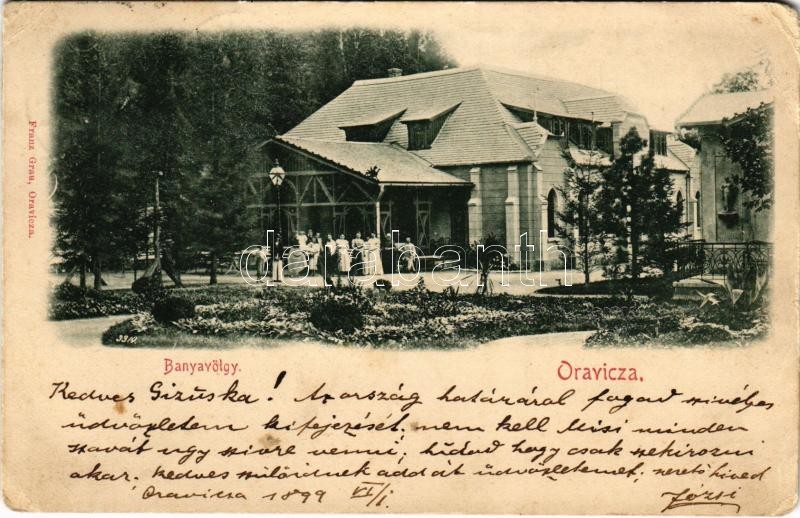 Franz Grau, Oravicza.
darabanth
3310.
Banyavölgy.
Oravicza.
Kedves Gizuska! Az ország határáról fogad szivélyes
üdvözletem kifejezését, nem kell Misi minden
szavát ugy szivre venni, tudod hogy csak
akar. Kedves szülőidnek add át üdvözletemet; szerető hived
Oravicza 1899 VI/1.
Józsi